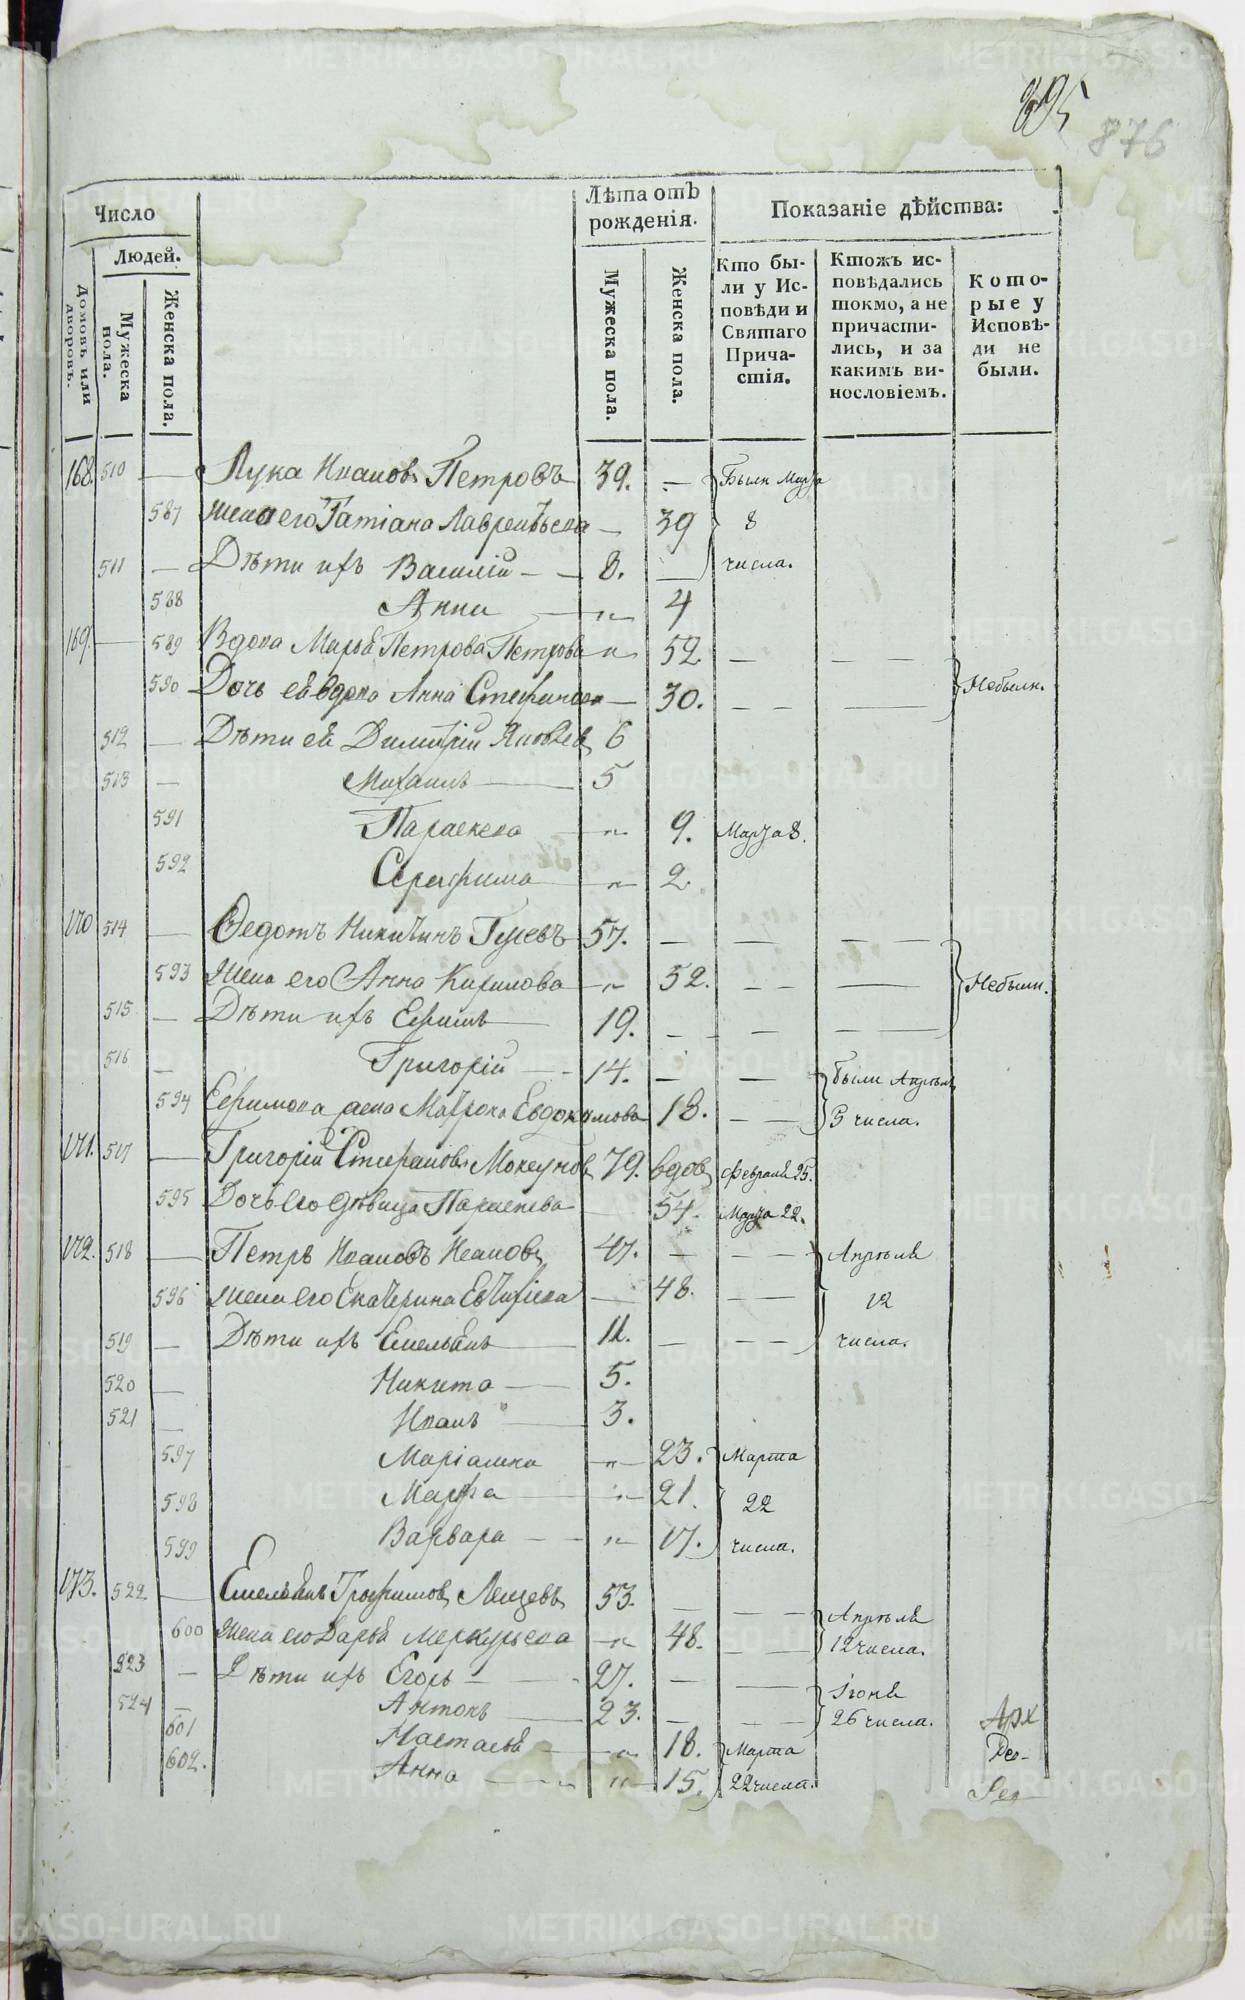 876
Число
Лѣта отъ рожденія.
Показаніе дѣйства:
Людей.
Домовъ или дворовъ.
Мужеска пола.
Женска пола.
Мужеска пола.
Женска пола.
Кто были у Исповѣди и Святаго Причастія.
Ктожъ исповѣдались токмо, а не причастились, и за какимъ винословіемъ.
Которые у Исповѣди не были.
168. 510 — Лука Ивановъ Петровъ 39. — Были Марта
587 жена его Татіана Лаврентьева — 39 8
511 — Дѣти ихъ Василій — 8. — числа.
588 Анна — 4
169. — 589 Вдова Марья Петрова Петрова 52
590 Дочь ея вдова Анна Стефанова — 30. Небыли.
512 — Дѣти ея Димитрій Яковлевъ 6
513 — Михаилъ — 5
591 Параскева 9. Марта 8.
592 Серафима 2
170 514 — Федотъ Никитинъ Гусевъ 57. —
593 Жена его Анна Кирилова 52. — Небыли.
515 — Дѣти ихъ Ефимъ 19. —
516 — Григорій — 14. — Были Апрѣля
594 Ефимова жена Матрона Евдокимова 18. — 5 числа.
171. 517 — Григорій Стефановъ Мокеуновъ 79. вдов. Февраля 25.
595 Дочь его дѣвица Параскева — 54. Марта 22.
172. 518 — Петръ Ивановъ Ивановъ 47. — Апрѣля
596 жена его Екатерина Евтифіева — 48. — 12
519 — Дѣти ихъ Емельянъ 11. — числа.
520 — Никита — 5.
521 — Иванъ — 3.
597 Маріамна 23. Марта
598 Марфа — 21. 22
599 Варвара — 17. числа.
173. 522 — Емельянъ Трофимовъ 53. — Апрѣля
600 Жена его Дарья Меркурьева 48. — 12 числа.
523 — Дѣти ихъ Егоръ — 27. — Іюня
524 — Антонъ — 23. — 26 числа.
601 Настасья — 18. Марта
602. Анна — 15. 22 числа.
METRIKI.GASO-URAL.RU